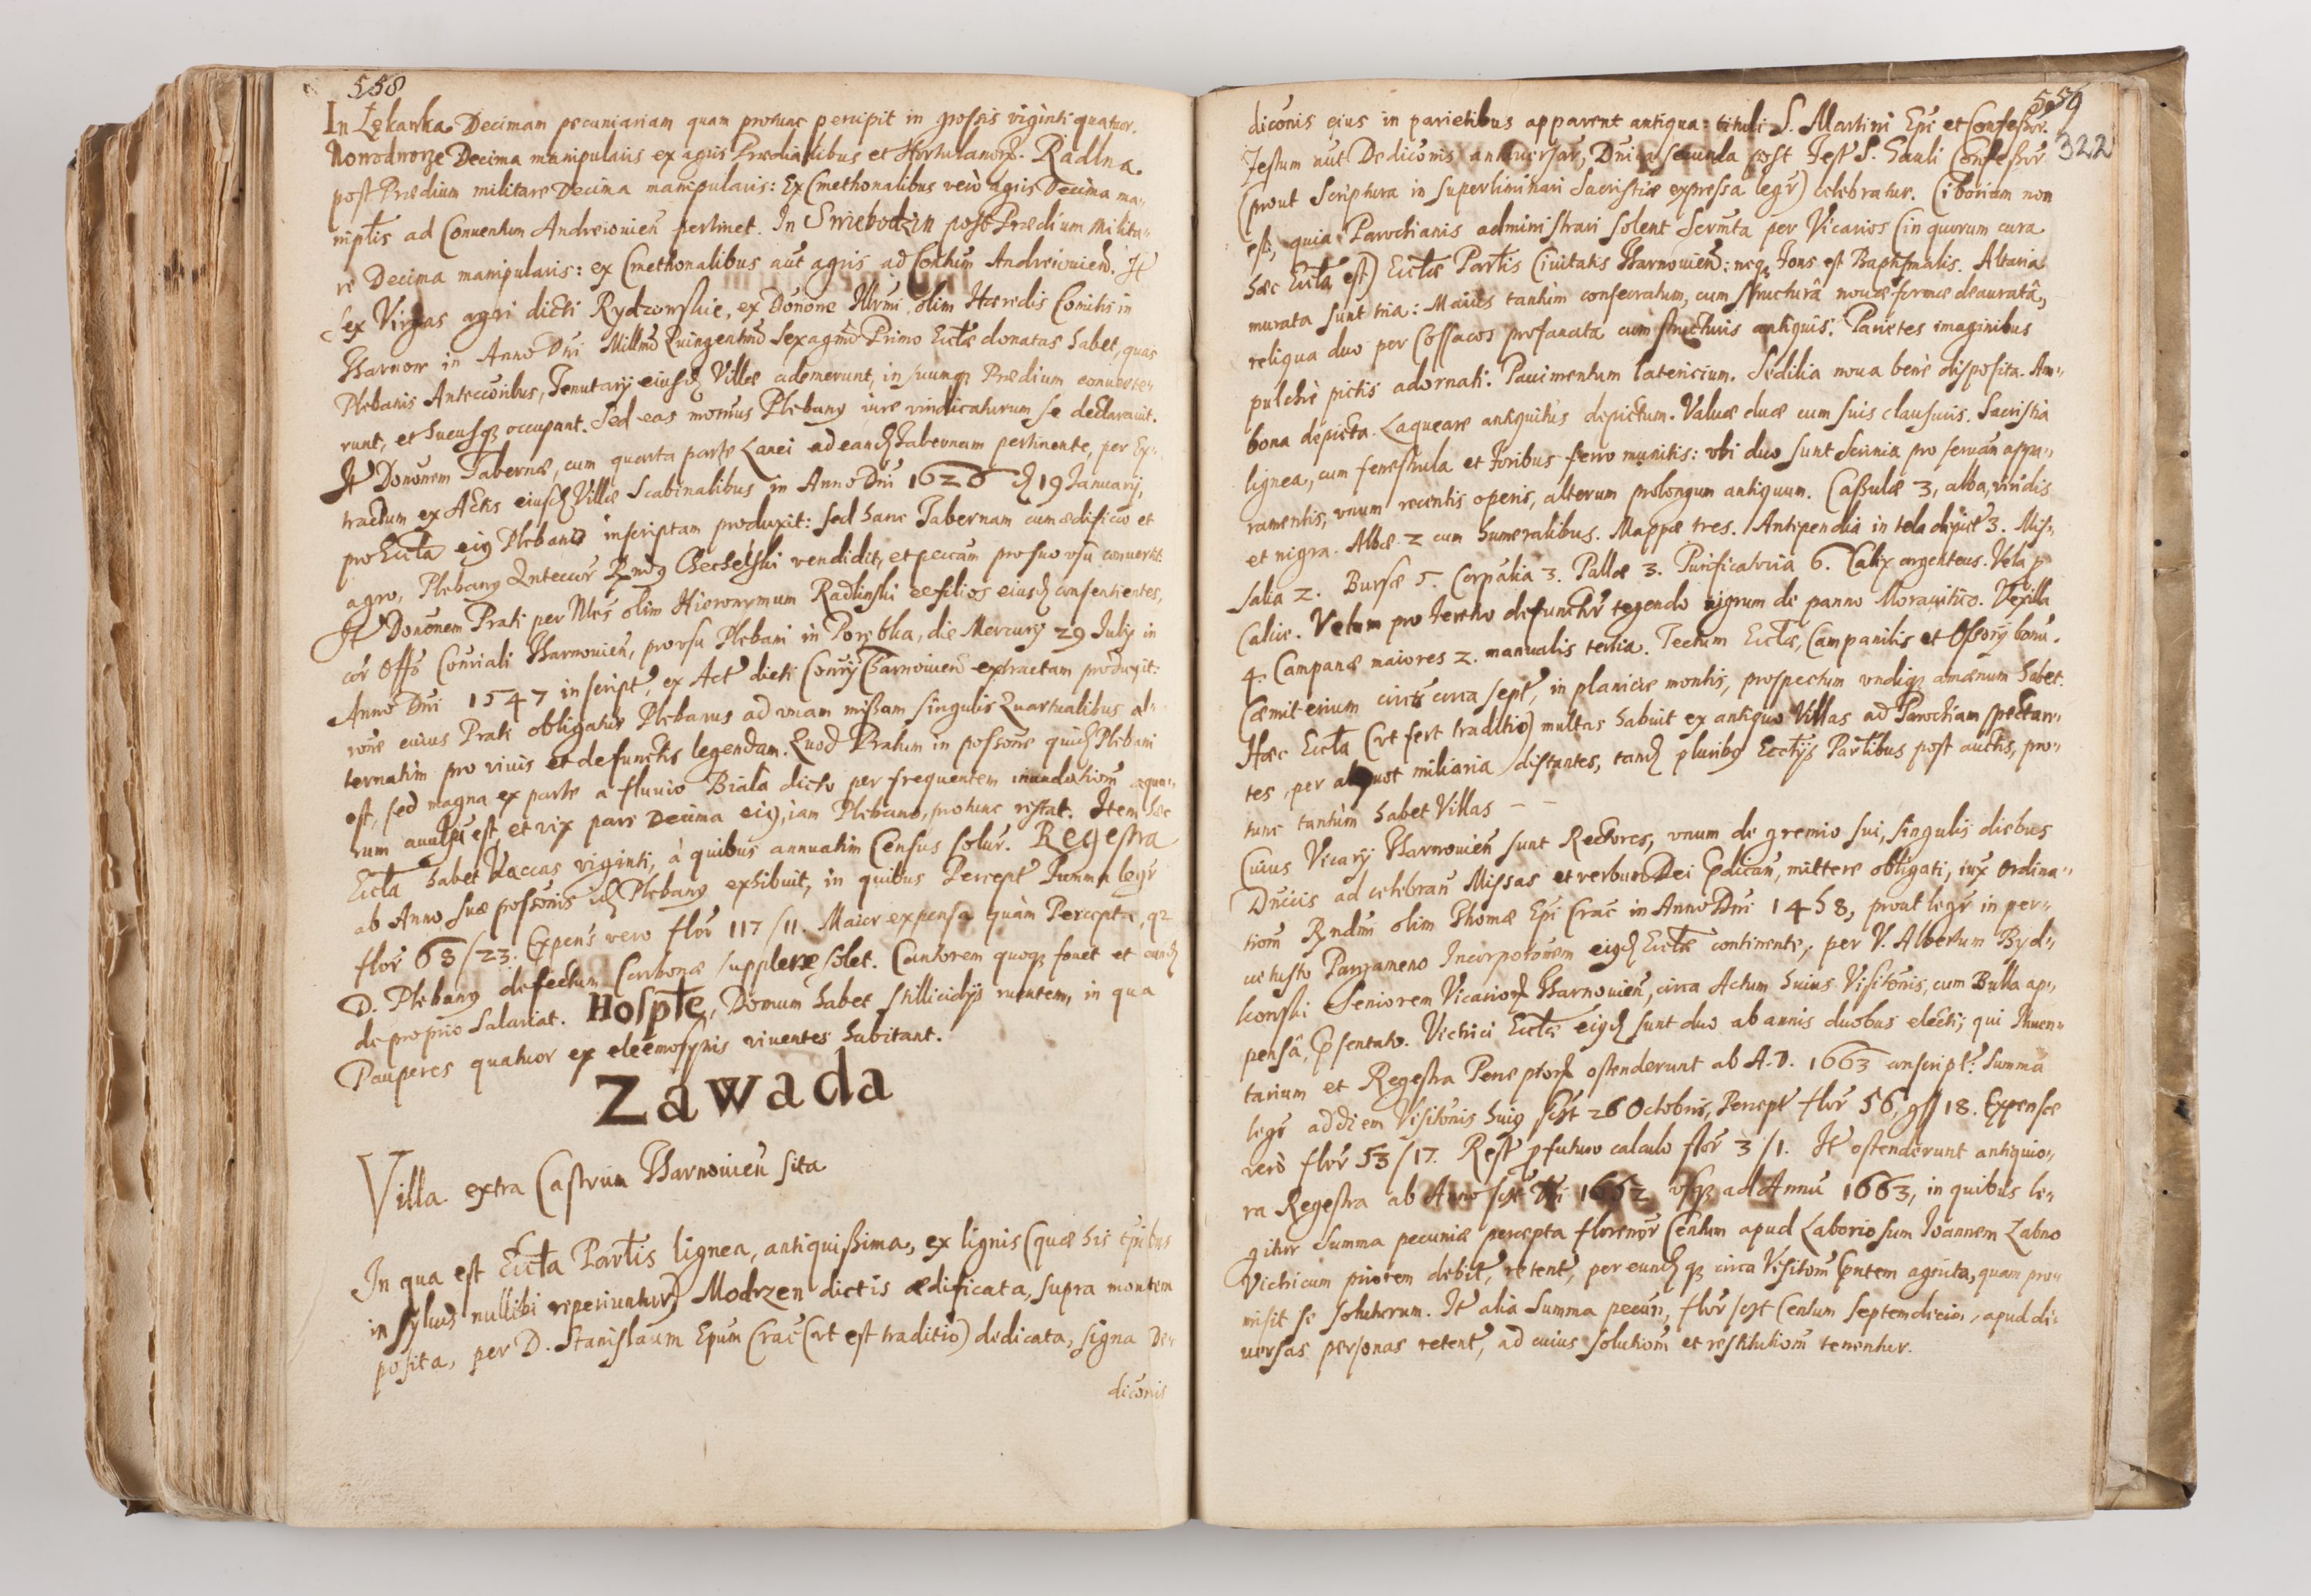 558
In Lękawka Decimam pecuniariam quam protunc percipit in grossis viginti quatuor.
Nowodworze Decima manipularis ex agris Prædialibus et Hortulanorꝝ. Radlna
post Prædium militare Decima manipularis: Ex Cmethonalibus verò agris Decima ma„
niplis ad Conuentum Andreiouien̄ pertinet. In Swiebodzin post Prædium milita„
re Decima manipularis: ex Cmethonalibus aut̄ agris ad Conuent̄um Andreiouien̄. It̄
sex Virgas agri dicti Rydzowskie, ex Donōne Illrmi olim Hæredis Comitis in
Tharnow in Anno Dn̄i Millm̄o Quingentm̄o Sexagm̄o Primo Eccłæ donatas habet, quas
Plebanis Anteccōribus, Tenutarij eiusdꝫ Villæ ademerunt, in suumqꝫ Prædium conuerte„
runt, et hucusqꝫ occupant. Sed eas modernus Plebanꝰ iure vindicaturum se declarauit.
It̄ Donōnem Tabernæ, cum quarta parte Lanei ad eandꝫ Tabernam pertinente, per Ex„
tractum ex Actis eiusdꝫ Villæ Scabinalibus in Anno Dn̄i 1626 d 19 Januarij,
pro Eccła eiꝰ Plebano inscriptam produxit: sed hanc Tabernam cum ædificio et
agro, Plebanꝰ Antecc̄or Rn̄dꝰ Chechelski vendidit, et pecc̄am pro suo vsu conuertit.
It̄ Donōnem Prati per Nles olim Hieronymum Radlinski et filios eiusdꝫ consentientes,
cor̄ Offō Conriali Tharnouien̄, pro vsu Plebani in Porębka, die Mercurij 29 Julij in
Anno Dn̄i 1547 inscript̄, ex Act̄ dicti Con̄rij Tharnouien̄ extractam produxit:
rōne cuius Prati obligatur Plebanus ad vnam missam singulis Quartualibus al„
ternatim pro viuis et defunctis legendam. Quod Pratum in possōne quidꝫ Plebani
est, sed magna ex parte a fluuio Biała dicto per frequentem inundatiom̄ aqua„
rum auulsū est, et vix pars Decima eiꝰ, iam Plebano, protunc restat. Item hæc
Eccła habet Vaccas viginti, à quibus annuatim Census soluṫ. Regestra
ab Anno suæ possōnis idꝫ Plebanꝰ exhibuit, in quibus Percept̄ summa legr̄
flor̄ 68/23. Expens̄ vero flor̄ 117/11. Maior expensa quàm Percepta, qꝫ
D. Plebanꝰ defectum Carbonæ supplere solet. Cantorem quoqꝫ fouet et eundꝫ
de proprio Salariat. Hosplē, Domum habet stillicidijs ruentem, in qua
Pauperes quatuor ex eleemosynis viuentes habitant.
Zawada
Villa extra Castrum Tharnouien̄ sita
In qua est Eccła Partis lignea, antiquissima, ex lignis (quæ his tp̄ibus
in syluis nullibi reperiuntur) Modrzen dictis ædificata, supra montem
posita, per D. Stanislaum Ep̄um Crac̄ (vt est traditio) dedicata, signa De„
dicōnis
559
322
dicōnis eius in parietibus apparent antiqua: tituli S. Martini Ep̄i et Confessor̄.
Festum aut̄ Dedicōnis anniuersar̄, Dn̄ica secunda post Fest̄ S. Galli Confessor̄
(prout Scriptura in superliminari Sacristiæ expressa legr̄) celebratur. Ciborium non
est, quia Parochianis administrari solent Scrm̄ta per Vicarios (in quorum cura
hæc Eccła est) Eccłæ Partis Ciuitatis Tharnouien̄: neqꝫ Fons est Baptismalis. Altaria
murata sunt tria: Maius tantùm consecratum, cum structurâ nouæ formæ deauratâ,
reliqua duo per Cossacos profanata cum structuris antiquis. Parietes imaginibus
pulchrè pictis adornati. Pauimentum latericium. Sedilia noua benè disposita. Am„
bona depicta. Laqueare antiquitùs depictum. Valuæ duæ cum suis clausuris. Sacristia
lignea, cum fenestrula et foribus ferro munitis: vbi duo sunt Scrinia pro seruan̄ appa„
ramentis, vnum recentis operis, alterum prolongum antiquum. Casulæ 3, alba, viridis
et nigra. Albæ 2 cum humeralibus. Mappæ tres. Antipendia in tela depict̄ 3. Mis„
salia 2. Bursæ 5. Corp̄alia 3. Pallæ 3. Purificatoria 6. Calix argenteus. Vela p̱
Calice. Velum pro feretro defunctor̄ tegendo nigrum de panno Morauitico. Vexilla
4. Campanæ maiores 2. manualis tertia. Tectum Eccłæ, Campanilis et Ossorij bonū.
Cæmiterium circū circa sept̄, in planicie montis, prospectum vndiqꝫ amænum habet.
Hæc Eccła (vt fert traditio) multas habuit ex antiquo Villas ad Parochiam spectan„
tes, per aliquot miliaria distantes, tandꝫ pluribꝰ Eccłijs Partibus post auctis, pro„
tunc tantùm habet Villas – –
Cuius Vicarij Tharnouien̄ sunt Rectores, vnum de gremio sui, singulis diebus
Dn̄icis ad celebran̄ Missas et verbum Dei p̄dican̄, mittere obligati, iux̄ Ordina„
tiom̄ Rn̄dmi olim Thomæ Ep̄i Crac̄ in Anno Dn̄i 1458, prout legr̄ in per„
uetusto Pargameno Incorporōnem eiꝰdꝫ Eccłæ continente, per V. Albertum Byd„
łowski Seniorem Vicariorꝝ Tharnouien̄, circa Actum huius Visitōnis, cum Bulla ap„
pensâ, p̄sentato. Victrici Eccłæ eiꝰdꝫ sunt duo ab annis duobus electi; qui Inuen„
tarium et Regestra Perceptorꝝ ostenderunt ab A. D. 1663 conscript̄: Summa
legr̄ ad diem Visitōnis huiꝰ scił 26 Octobris, Percept̄ flor̄ 56, gſſ 18. Expensæ
verò flor̄ 53/17. Rest̄ p̱ futuro calculo flor̄ 3/1. It̄ ostenderunt antiquio„
ra Regestra ab Anno scił Dn̄i 1652 vsqꝫ ad Annū 1663, in quibus le„
gitur Summa pecuniæ percepta florenor̄ Centum apud Laboriosum Joannem Zabno
Victricum priorem debit̄, retent̄, per eundꝫ qꝫ circa Visitom̄ p̄ntem agnita, quam pro„
misit se soluturum. It̄ alia Summa pecun̄, flor̄ scił Centum septemdecim, apud di„
uersas personas retent̄, ad cuius solutiom̄ et restitutiom̄ tenentur.